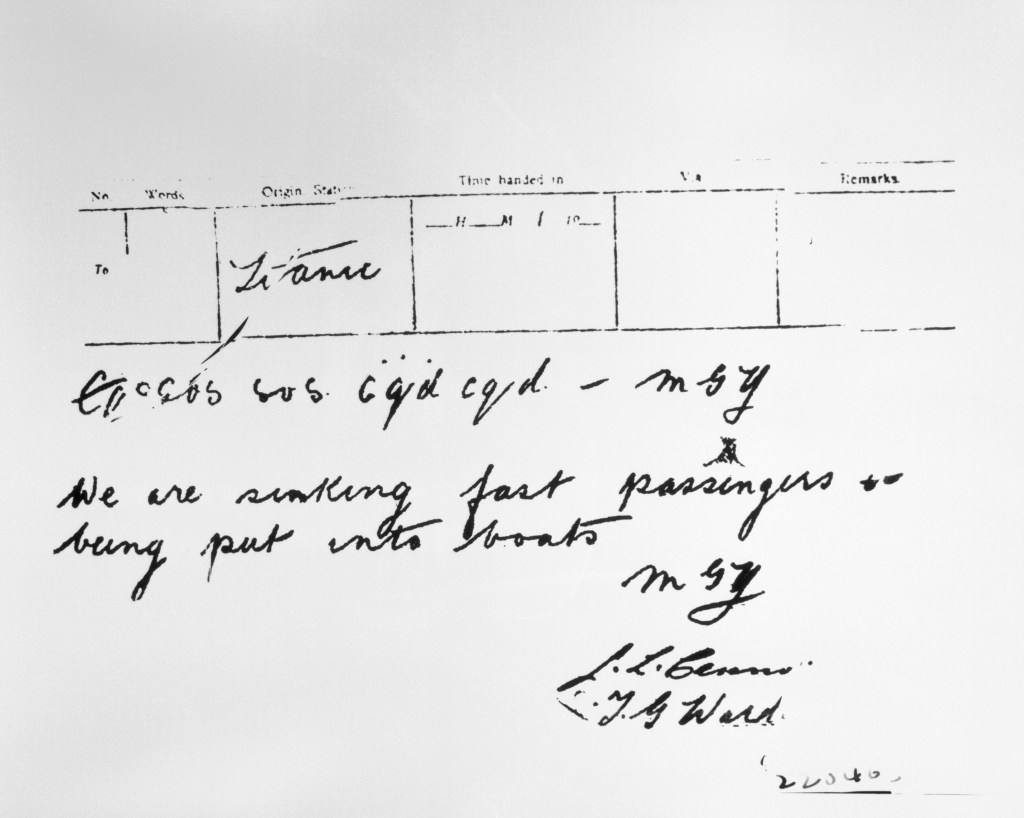 No. Words. Origin. Station Time handed in Via Remarks.
H M 19
To
Titanic
SOS SOS. cqd cqd. - MGY
We are sinking fast passengers
being put into boats
MGY
T. G Ward.